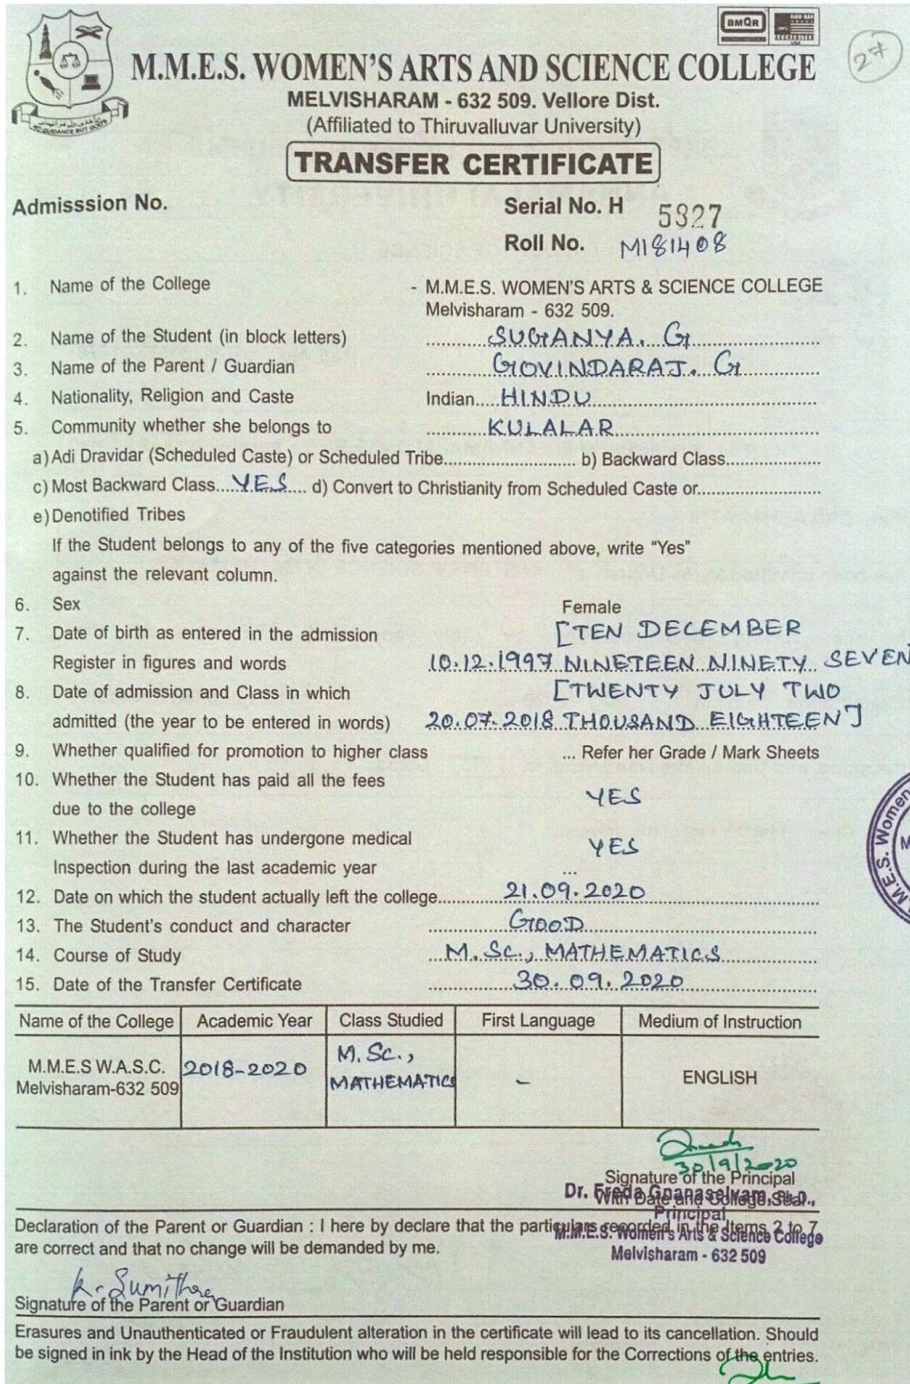 BMQR
27
M.M.E.S. WOMEN'S ARTS AND SCIENCE COLLEGE
MELVISHARAM - 632 509. Vellore Dist.
(Affiliated to Thiruvalluvar University)
TRANSFER CERTIFICATE
Admisssion No.
Serial No. H 5327
Roll No. M181408
1. Name of the College - M.M.E.S. WOMEN'S ARTS & SCIENCE COLLEGE
Melvisharam - 632 509.
2. Name of the Student (in block letters) SUGANYA. G
3. Name of the Parent / Guardian GOVINDARAJ. G
4. Nationality, Religion and Caste Indian....HINDU
5. Community whether she belongs to KULALAR
a) Adi Dravidar (Scheduled Caste) or Scheduled Tribe........................ b) Backward Class..................
c) Most Backward Class....YES.... d) Convert to Christianity from Scheduled Caste or.......................
e) Denotified Tribes
If the Student belongs to any of the five categories mentioned above, write “Yes”
against the relevant column.
6. Sex Female
7. Date of birth as entered in the admission [TEN DECEMBER
Register in figures and words 10.12.1997 NINETEEN NINETY SEVEN
8. Date of admission and Class in which [TWENTY JULY TWO
admitted (the year to be entered in words) 20.07.2018 THOUSAND EIGHTEEN]
9. Whether qualified for promotion to higher class ... Refer her Grade / Mark Sheets
10. Whether the Student has paid all the fees
due to the college YES
11. Whether the Student has undergone medical YES
Inspection during the last academic year ...
12. Date on which the student actually left the college 21.09.2020
13. The Student's conduct and character GOOD
14. Course of Study M.Sc., MATHEMATICS
15. Date of the Transfer Certificate 30.09.2020
Name of the College Academic Year Class Studied First Language Medium of Instruction
M.M.E.S W.A.S.C. 2018-2020 M.Sc., - ENGLISH
Melvisharam-632 509 MATHEMATICS
30/9/2020
Signature of the Principal
With Date and College Seal.
Dr. Freda Gnanaselvam, Ph.D.,
Principal
M.M.E.S. Women's Arts & Science College
Melvisharam - 632 509
Declaration of the Parent or Guardian : I here by declare that the particulars recorded in the Items 2 to 7
are correct and that no change will be demanded by me.
K. Sumithra
Signature of the Parent or Guardian
Erasures and Unauthenticated or Fraudulent alteration in the certificate will lead to its cancellation. Should
be signed in ink by the Head of the Institution who will be held responsible for the Corrections of the entries.
M.E.S. Women